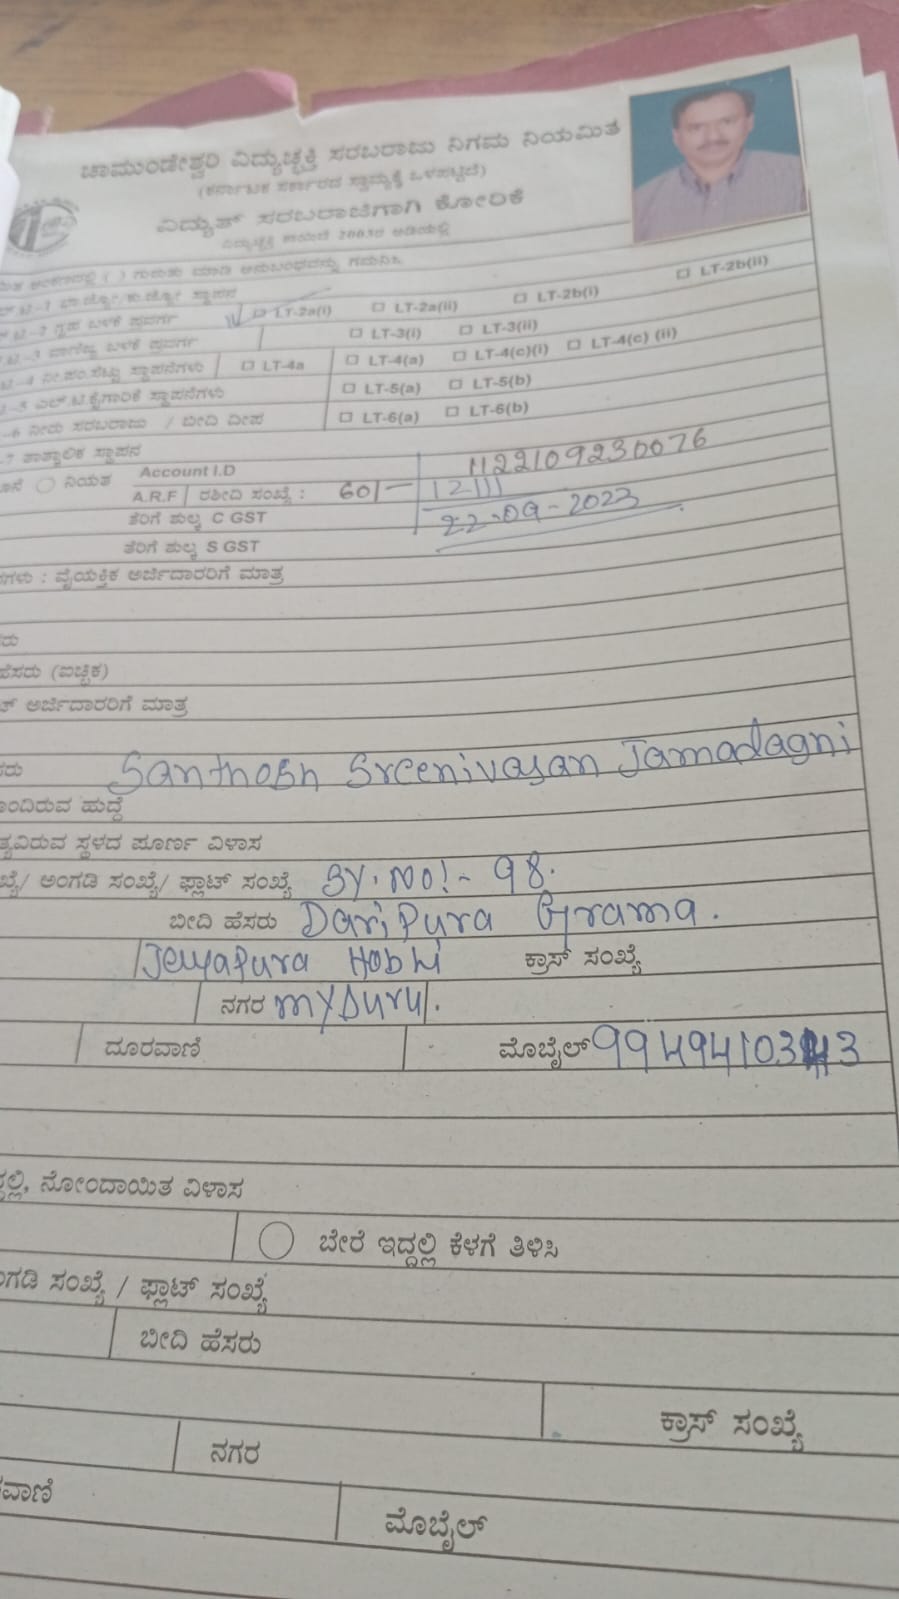 ಚಾಮುಂಡೇಶ್ವರಿ ವಿದ್ಯುಚ್ಛಕ್ತಿ ಸರಬರಾಜು ನಿಗಮ ನಿಯಮಿತ
(ಕರ್ನಾಟಕ ಸರ್ಕಾರದ ಸ್ವಾಮ್ಯಕ್ಕೆ ಒಳಪಟ್ಟಿದೆ)
ವಿದ್ಯುತ್ ಸರಬರಾಜಿಗಾಗಿ ಕೋರಿಕೆ
ವಿದ್ಯುಚ್ಛಕ್ತಿ ಕಾಯಿದೆ 2003ರ ಅಡಿಯಲ್ಲಿ
( ) ಗುರುತು ಮಾಡಿ ಅನುಬಂಧವನ್ನು ಗಮನಿಸಿ
ಸ್ಥಾಪನ
ಗೃಹ ಬಳಕೆ ಪ್ರವರ್ಗ LT-2a(i) LT-2a(ii) LT-2b(i) LT-2b(ii)
ವಾಣಿಜ್ಯ ಬಳಕೆ ಪ್ರವರ್ಗ LT-3(i) LT-3(ii)
ನೀ.ಪಂ.ಸೆಟ್ಟು ಸ್ಥಾಪನೆಗಳು LT-4a LT-4(a) LT-4(c)(i) LT-4(c) (ii)
ಎಲ್.ಟಿ.ಕೈಗಾರಿಕೆ ಸ್ಥಾಪನೆಗಳು LT-5(a) LT-5(b)
ನೀರು ಸರಬರಾಜು / ಬೀದಿ ದೀಪ LT-6(a) LT-6(b)
-7 ತಾತ್ಕಾಲಿಕ ಸ್ಥಾಪನ
ನಿಯತ Account I.D 1122109230076
A.R.F ರಶೀದಿ ಸಂಖ್ಯೆ : 60/- 12111
ತೆರಿಗೆ ಶುಲ್ಕ C GST 22-09-2023
ತೆರಿಗೆ ಶುಲ್ಕ S GST
: ವೈಯಕ್ತಿಕ ಅರ್ಜಿದಾರರಿಗೆ ಮಾತ್ರ
ಹೆಸರು (ಐಚ್ಛಿಕ)
ಅರ್ಜಿದಾರರಿಗೆ ಮಾತ್ರ
Santhosh Sreenivasan Jamadagni
ಹುದ್ದೆ
ಸ್ಥಳದ ಪೂರ್ಣ ವಿಳಾಸ
/ ಅಂಗಡಿ ಸಂಖ್ಯೆ/ ಫ್ಲಾಟ್ ಸಂಖ್ಯೆ SY.NO:- 98.
ಬೀದಿ ಹೆಸರು Daripura Grama.
Jeyapura Hobli ಕ್ರಾಸ್ ಸಂಖ್ಯೆ
ನಗರ mysuru.
ದೂರವಾಣಿ ಮೊಬೈಲ್
ನೋಂದಾಯಿತ ವಿಳಾಸ
ಬೇರೆ ಇದ್ದಲ್ಲಿ ಕೆಳಗೆ ತಿಳಿಸಿ
ಸಂಖ್ಯೆ / ಫ್ಲಾಟ್ ಸಂಖ್ಯೆ
ಬೀದಿ ಹೆಸರು
ಕ್ರಾಸ್ ಸಂಖ್ಯೆ
ನಗರ
ಮೊಬೈಲ್